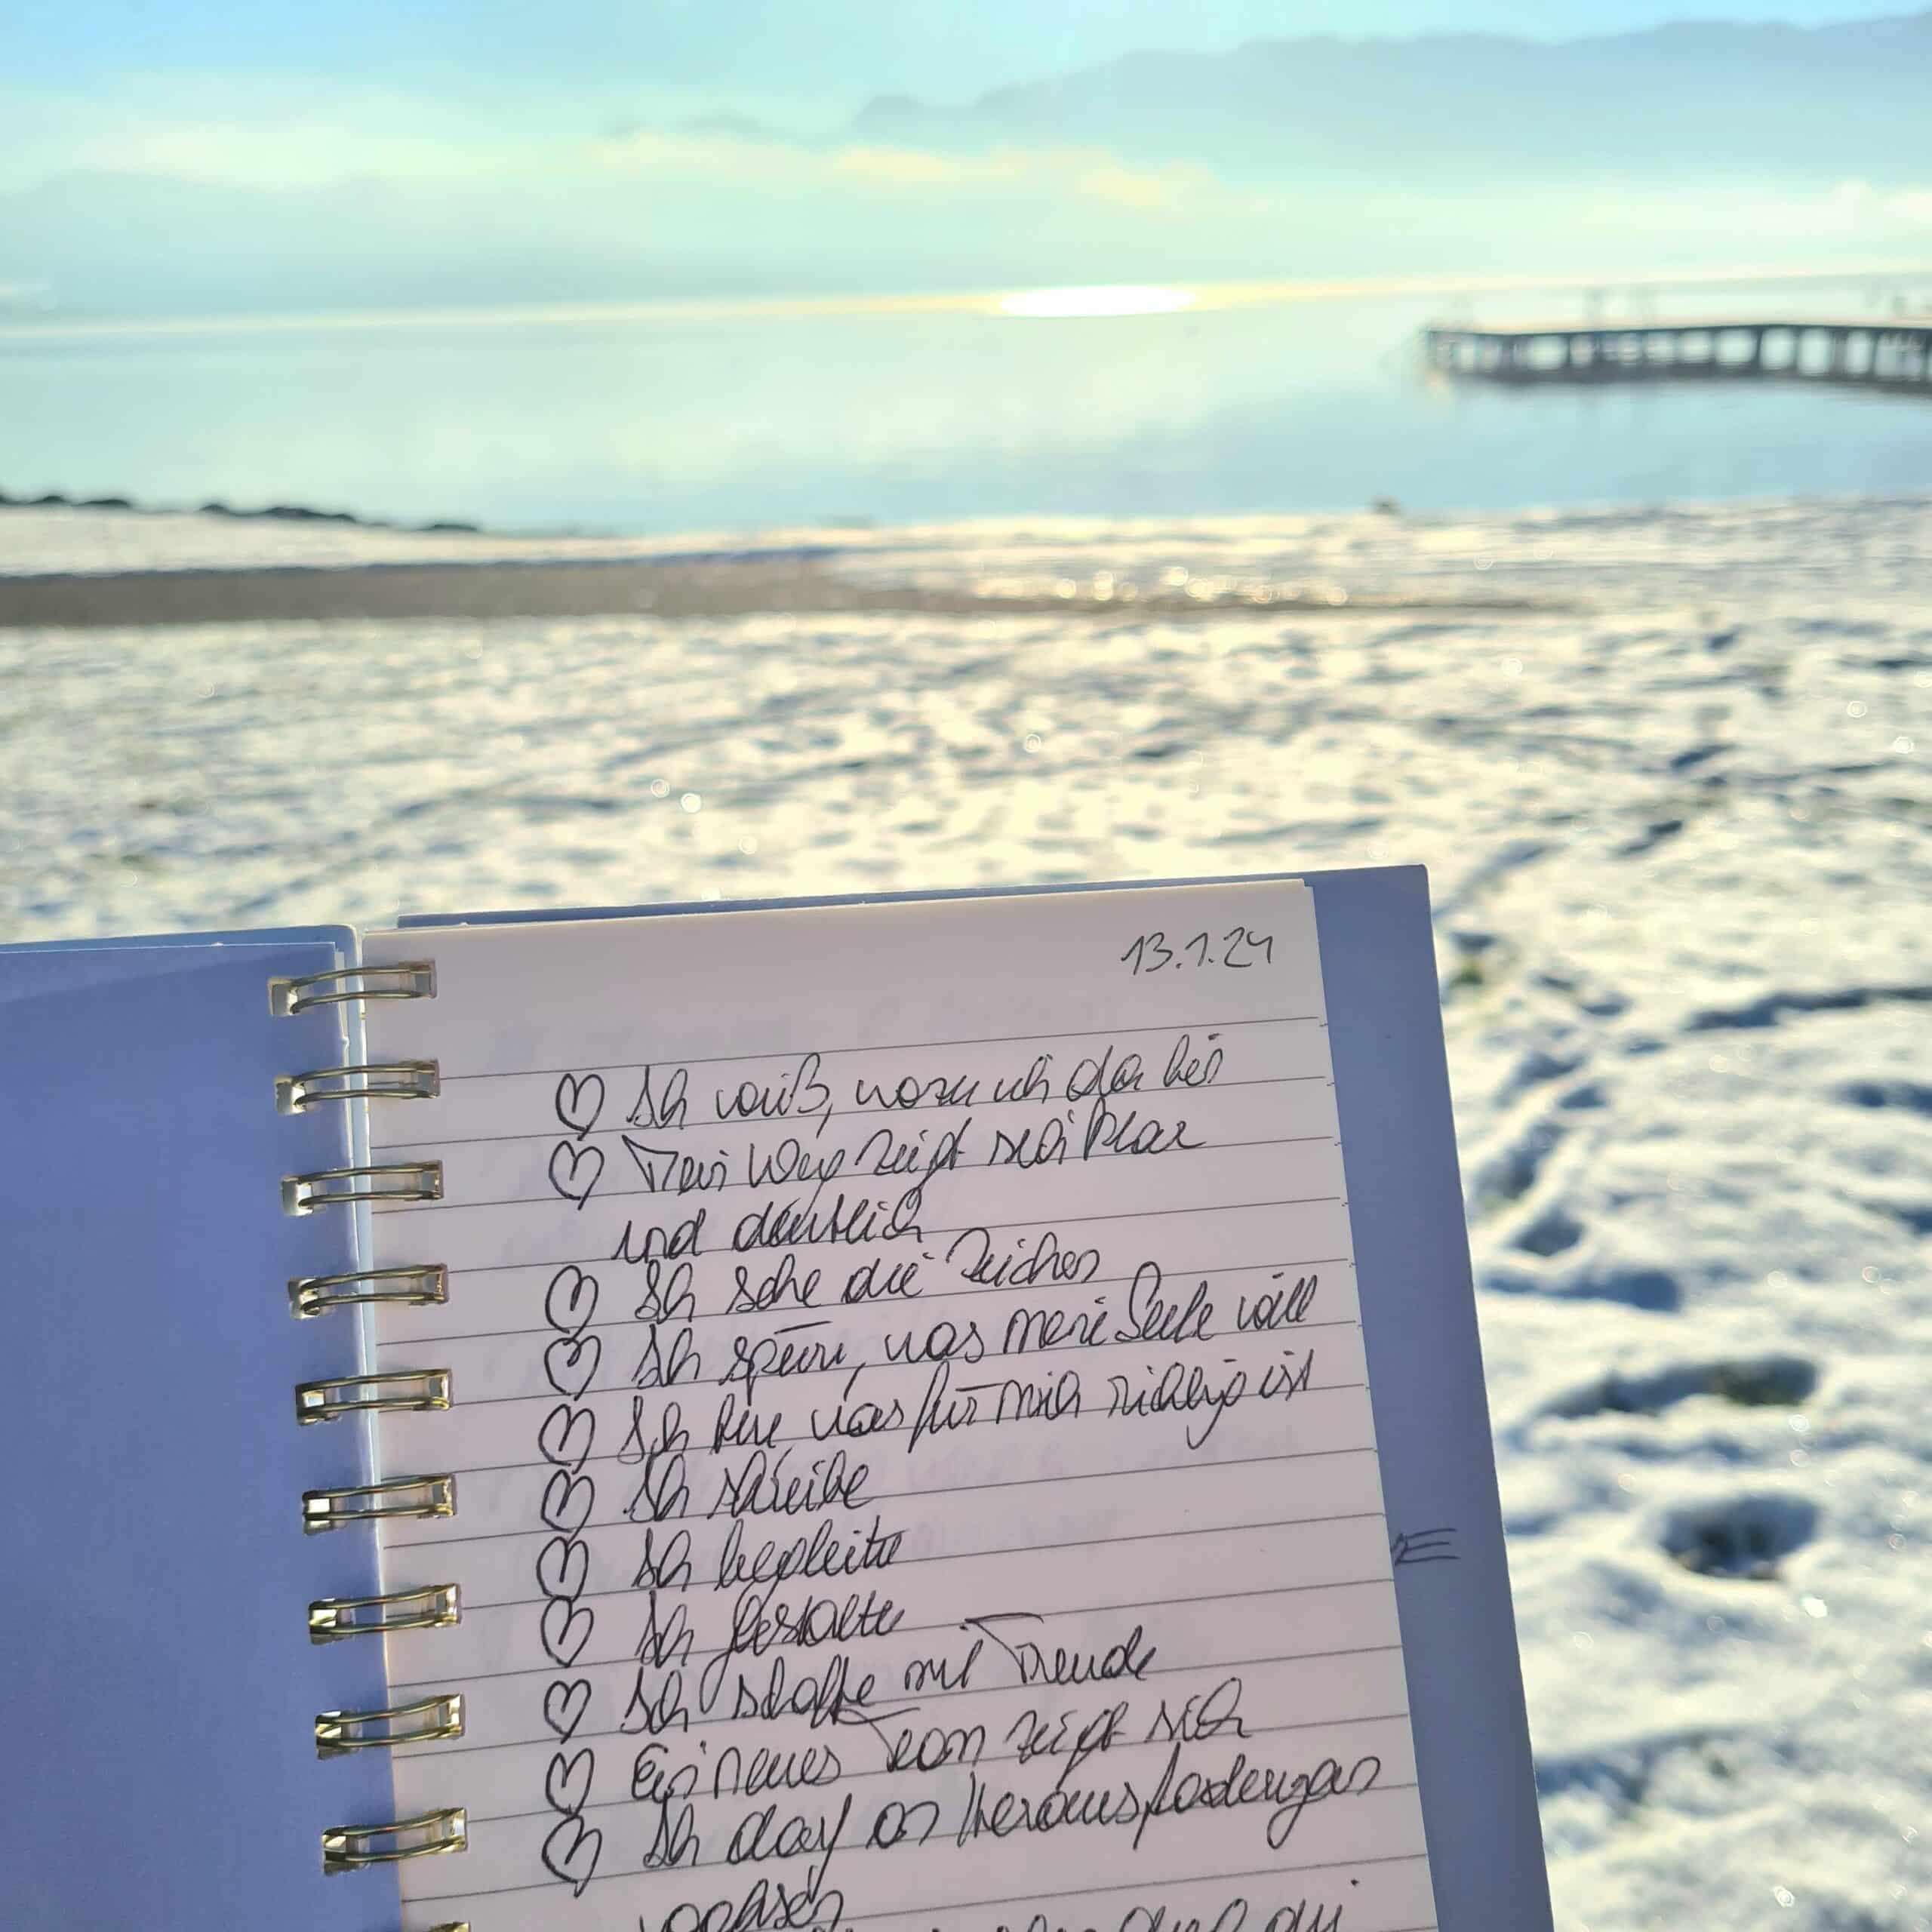 13.1.24
♡ Ich weiß, wozu ich da bin
♡ Mein Weg zeigt sich klar
und deutlich
♡ Ich sehe die Zeichen
♡ Ich spüre, was meine Seele will
♡ Ich tue was für mich richtig ist
♡ Ich schreibe
♡ Ich begleite
♡ Ich gestalte
♡ Ich schaffe mit Freude
♡ Ein neues Team zeigt sich
♡ Ich darf an Herausforderungen
wachsen
E